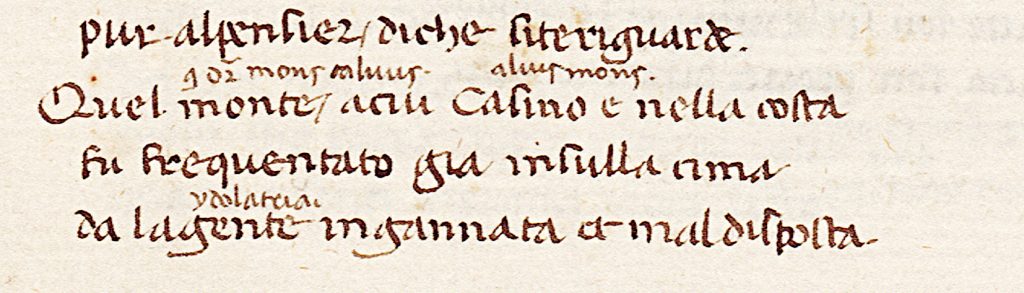 pur alpensier / diche siteriguarde.
q dr mons caluus. alius mons.
Quel monte / acui Casino e nella costa
fu frequentato gia insulla cima
ydolatria.
da lagente ingannata et mal disposta.